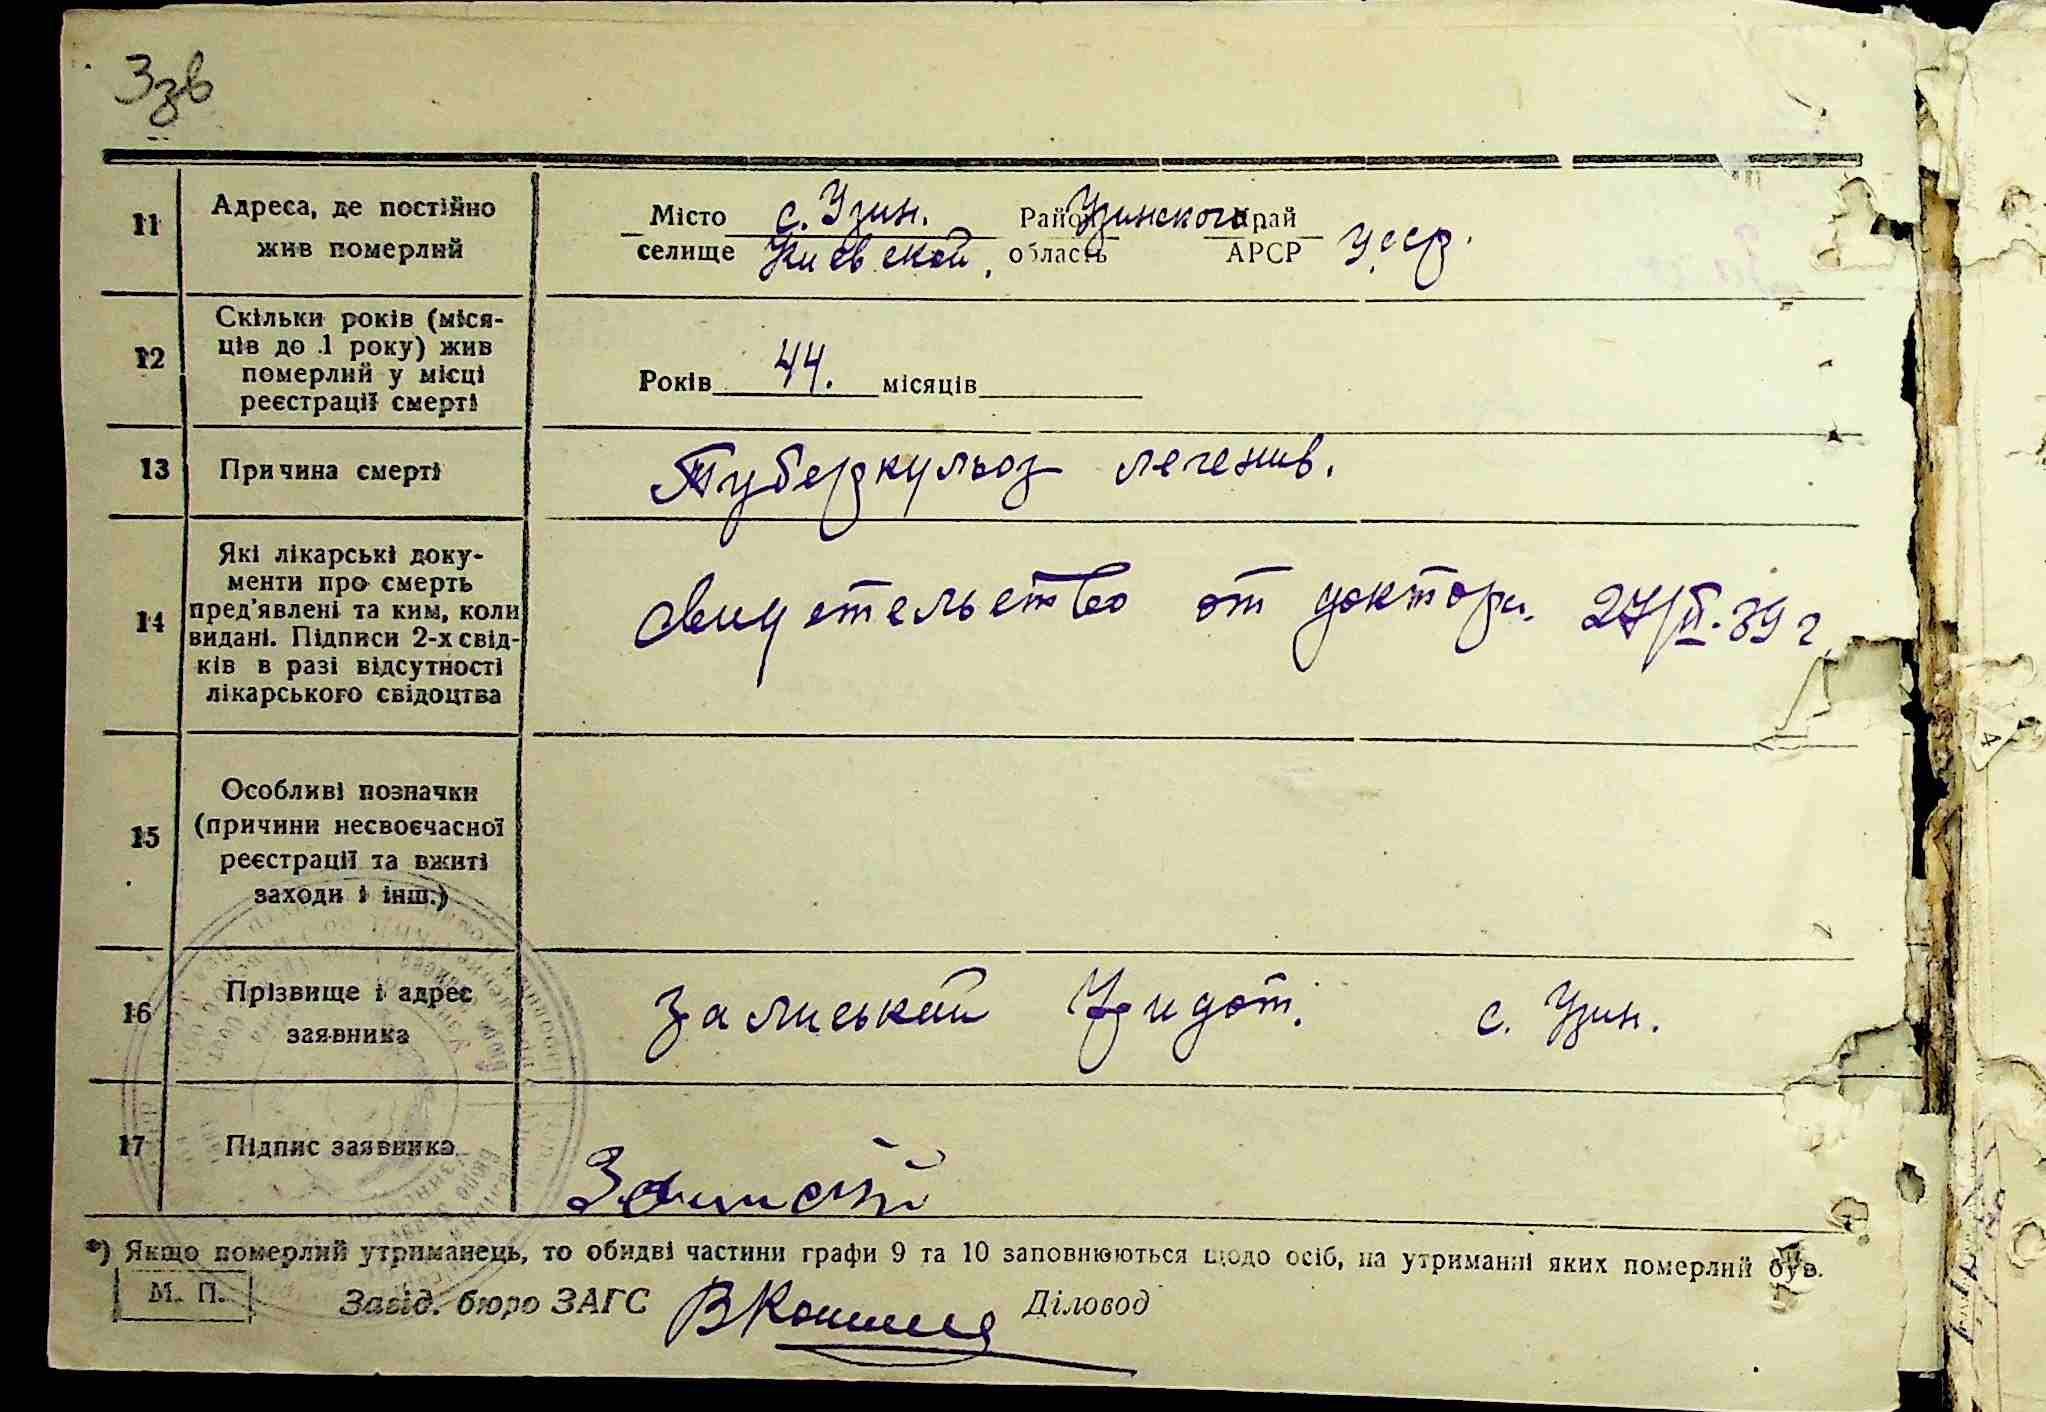 Ззв
11 Адреса, де постійно жив померлий
Місто с. Узин. Район Узинского Край
селище Киевской, область АРСР Усср.
12 Скільки років (міся-
ців до 1 року) жив
померлий у місці
реєстрації смерті
Років 44. місяців
13 Причина смерті Туберкульоз легенив.
14 Які лікарські доку-
менти про смерть
пред'явлені та ким, коли
видані. Підписи 2-х свід-
ків в разі відсутності
лікарського свідоцтва
свидетельство от доктора. 27/II-39 г.
15 Особливі позначки
(причини несвоєчасної
реєстрації та вжиті
заходи і інш.)
16 Прізвище і адрес
заявника
Залиський с. Узин.
17 Підпис заявника
*) Якщо померлий утриманець, то обидві частини графи 9 та 10 заповнюються щодо осіб, на утриманні яких померлий був.
М. П. Завід. бюро ЗАГС Діловод